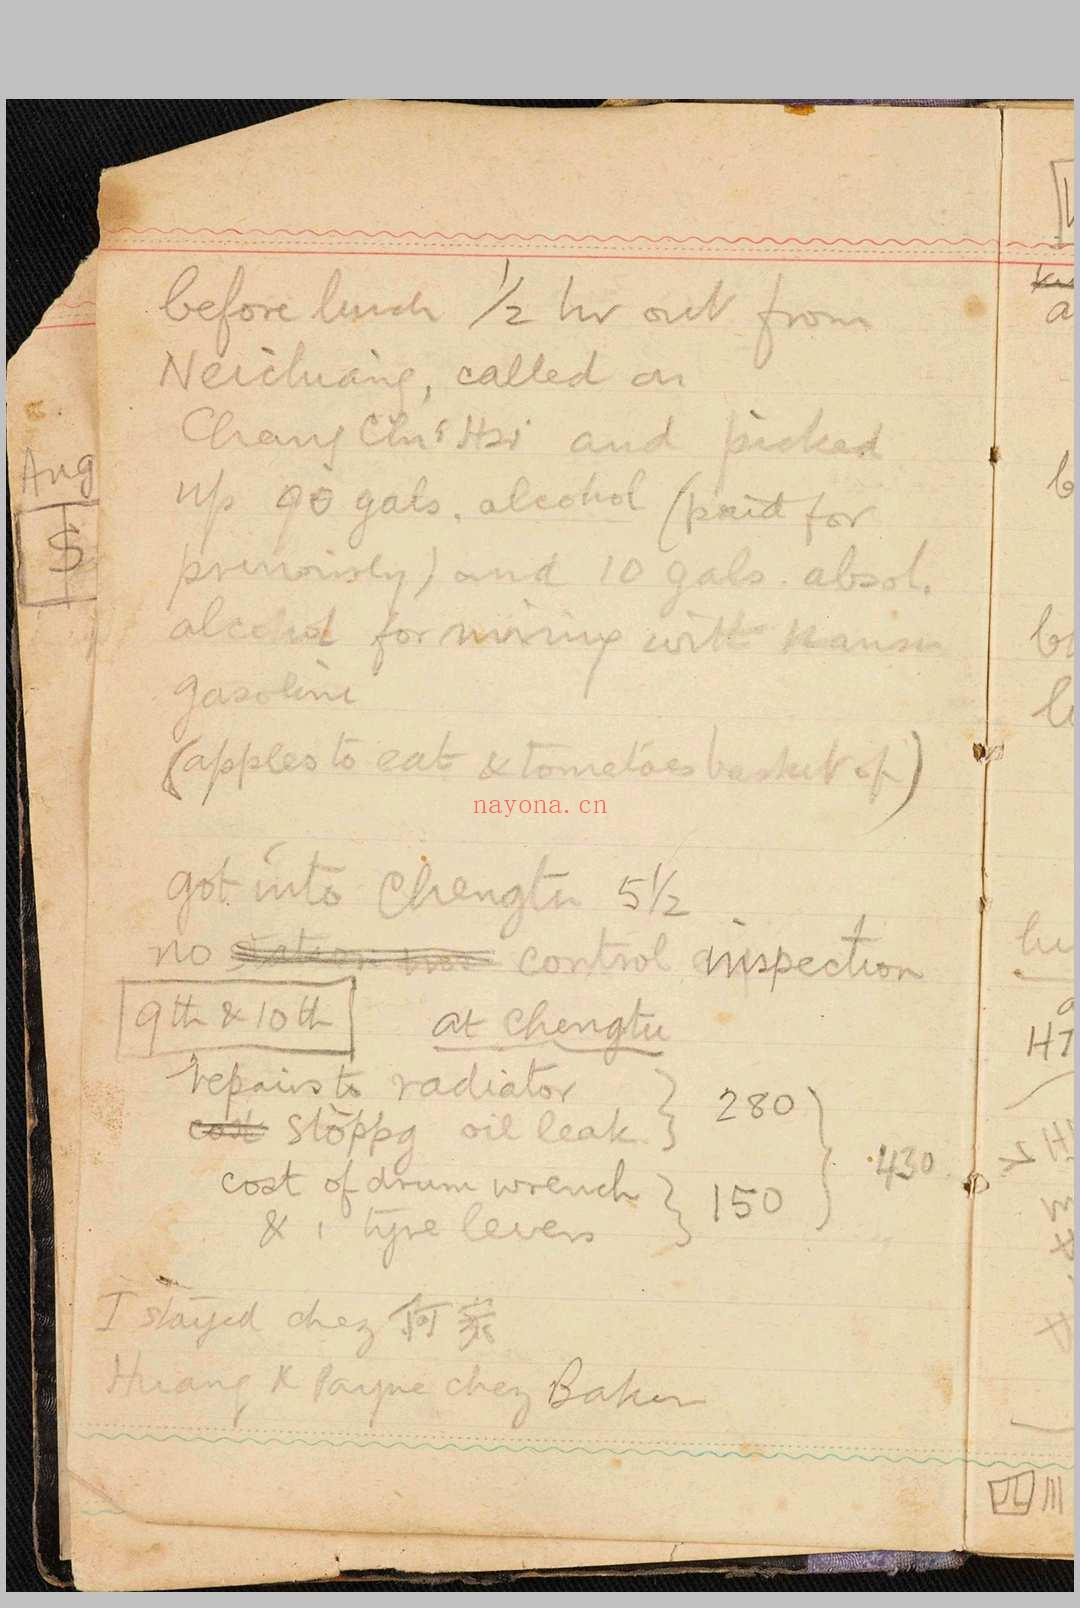 before lunch 1/2 hr out from
Neichiang, called on
Chang Chi Hsi and picked
up 90 gals. alcohol (paid for
previously) and 10 gals. absol.
alcohol for mixing with Kansu
gasoline
(apples to eat & tomatoes basket of)
nayona.cn
got into Chengtu 5 1/2
no station control inspection
9th & 10th at Chengtu
repairs to radiator } 280
cost stoppg oil leak
cost of drum wrench } 150
& 1 tyre levers
430
I stayed chez 何家
Huang & Payne chez Baker
Aug
$